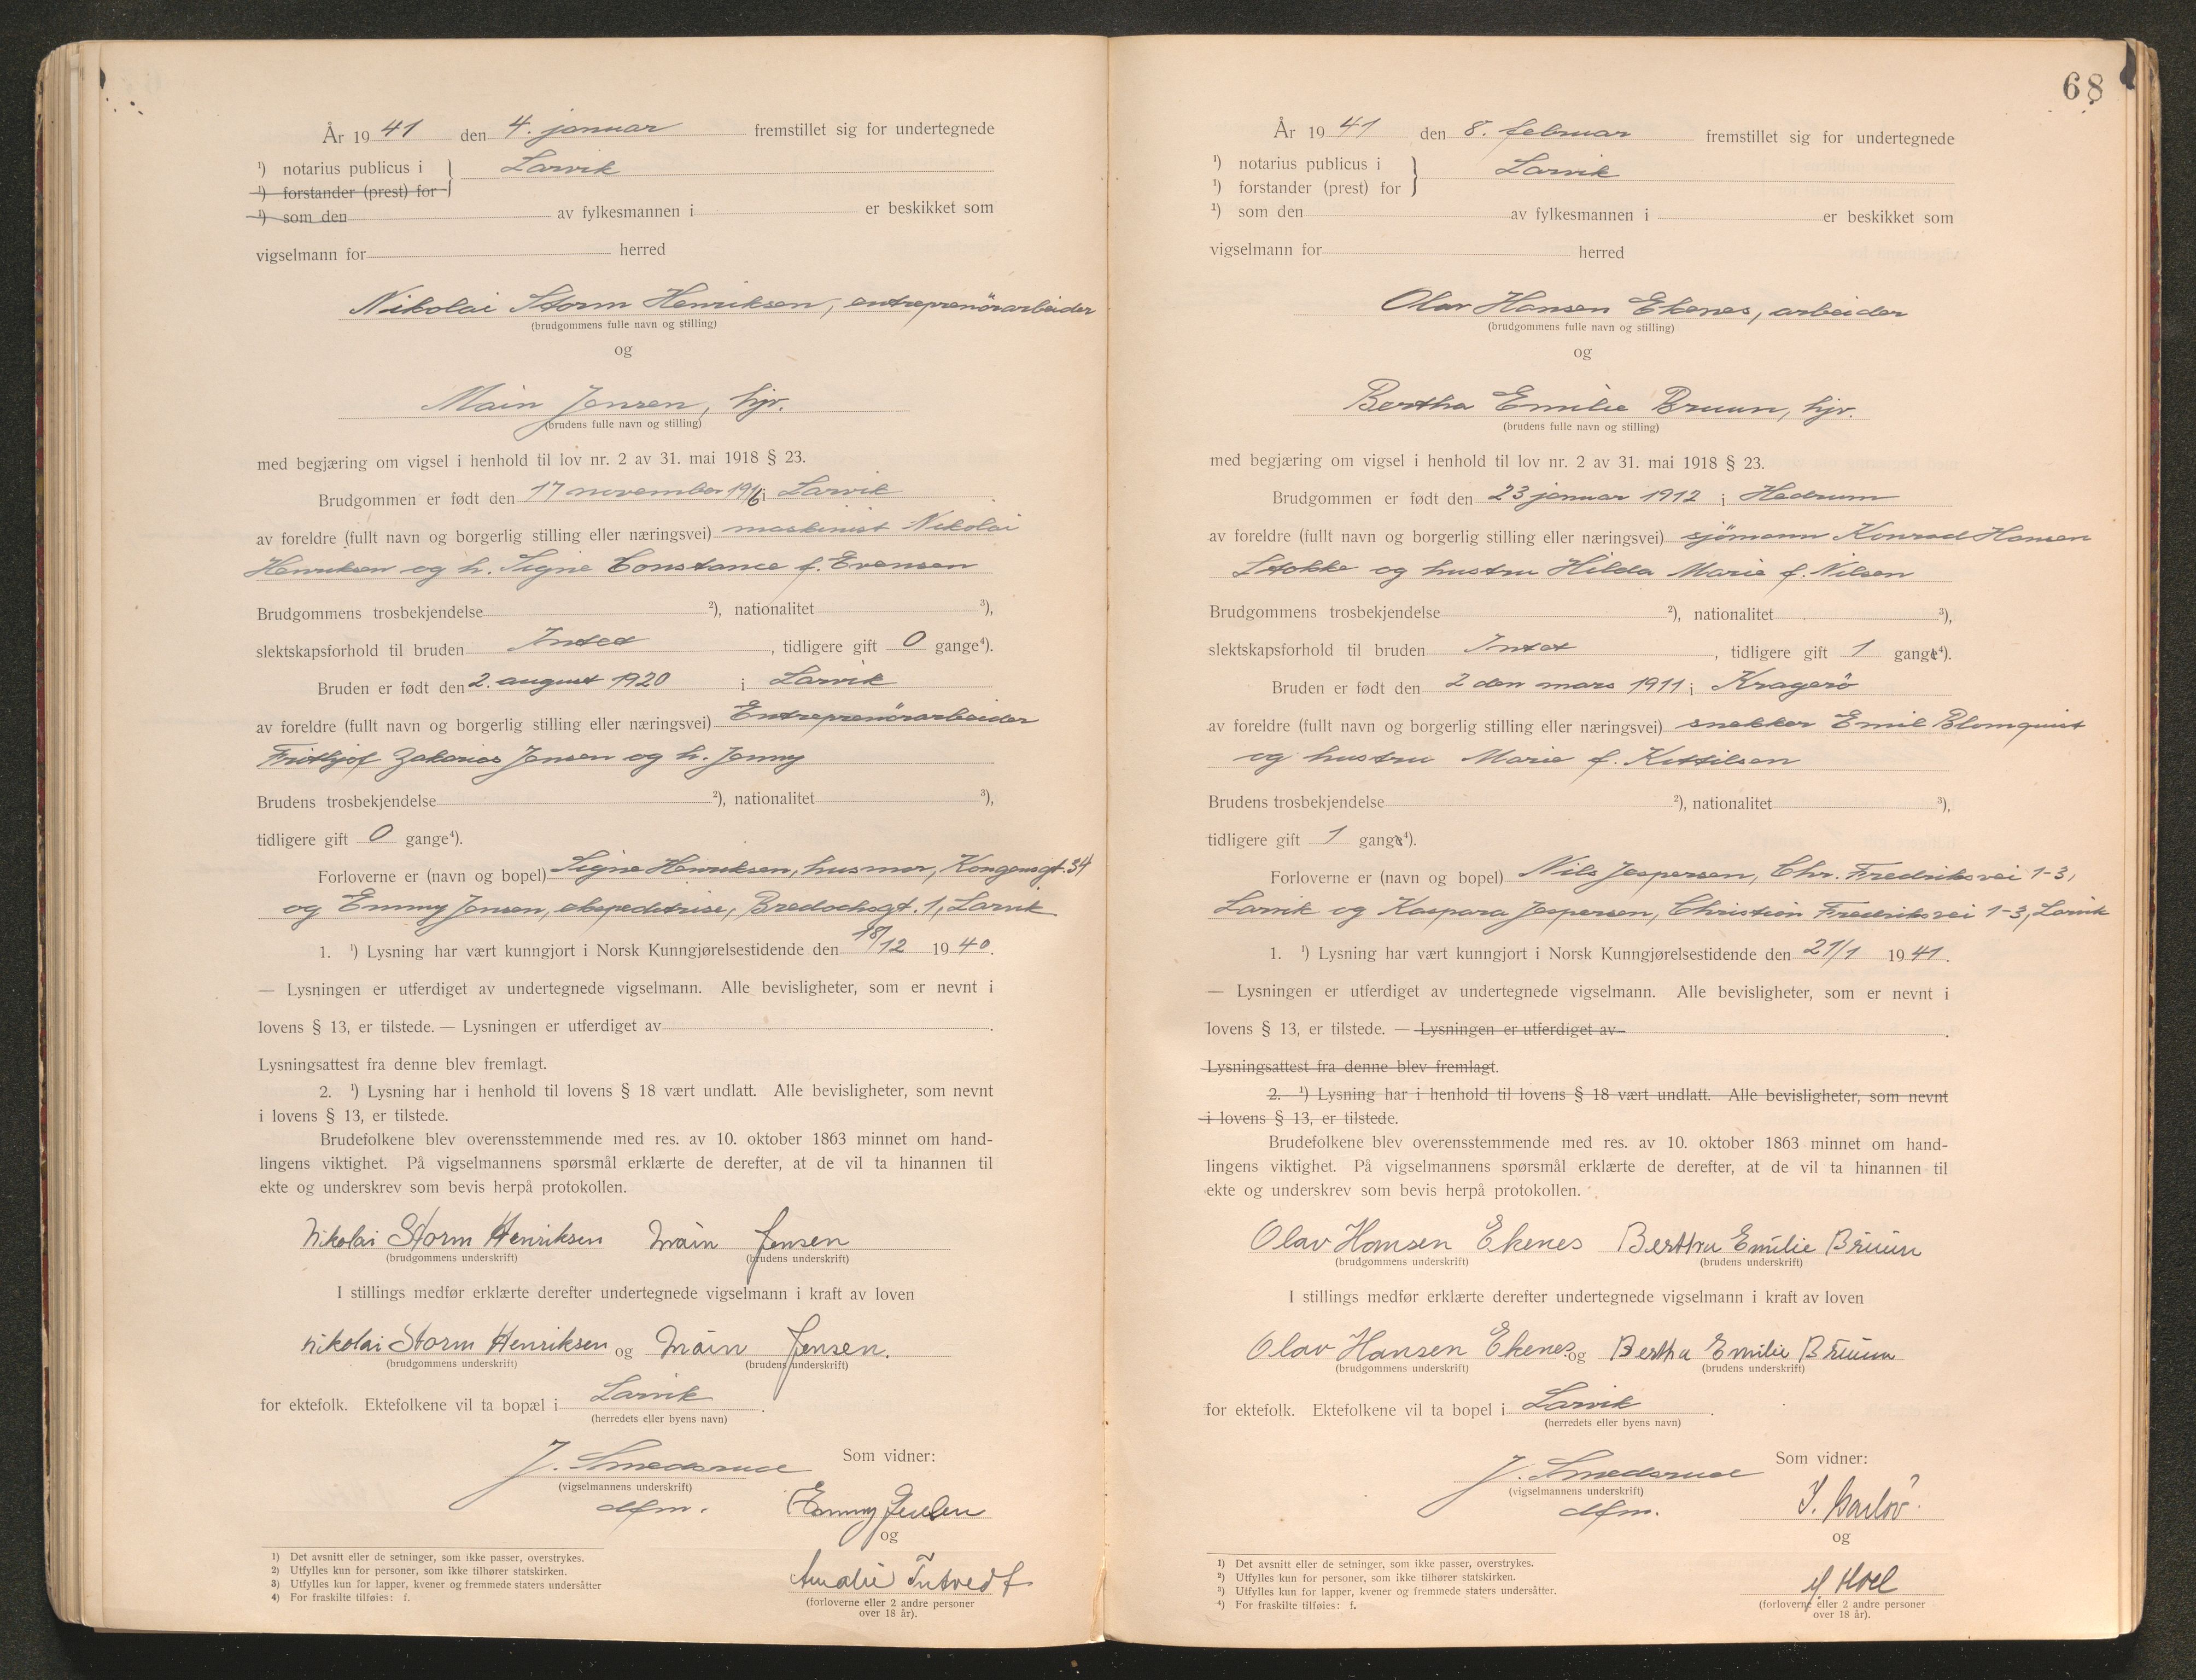 År 1941 den 4. januar fremstillet sig for undertegnede
¹) notarius publicus i } Larvik
¹) forstander (prest) for
¹) som den av fylkesmannen i er beskikket som
vigselmann for herred
Nikolai Storm Henriksen, entreprenörarbeider
(brudgommens fulle navn og stilling)
og
Main Jensen, hjv.
(brudens fulle navn og stilling)
med begjæring om vigsel i henhold til lov nr. 2 av 31. mai 1918 § 23.
Brudgommen er født den 17 november 1916 i Larvik
av foreldre (fullt navn og borgerlig stilling eller næringsvei) maskinist Nikolai
Henriksen og h. Signe Constance f. Evensen
Brudgommens trosbekjendelse ²), nationalitet ³),
slektskapsforhold til bruden Intet, tidligere gift 0 gange⁴).
Bruden er født den 2. august 1920 i Larvik
av foreldre (fullt navn og borgerlig stilling eller næringsvei) Entreprenörarbeider
Frithjof Zakarias Jensen og h. Jenny
Brudens trosbekjendelse ²), nationalitet ³),
tidligere gift 0 gange⁴).
Forloverne er (navn og bopel) Signe Henriksen, husmor, Kongensgt. 34
og Emmy Jensen, ekspeditrise, Bredochsgt. 1, Larvik
1. ¹) Lysning har vært kunngjort i Norsk Kunngjørelsestidende den 18/12 1940.
— Lysningen er utferdiget av undertegnede vigselmann. Alle bevisligheter, som er nevnt i
lovens § 13, er tilstede. — Lysningen er utferdiget av .
Lysningsattest fra denne blev fremlagt.
2. ¹) Lysning har i henhold til lovens § 18 vært undlatt. Alle bevisligheter, som nevnt
i lovens § 13, er tilstede.
Brudefolkene blev overensstemmende med res. av 10. oktober 1863 minnet om hand-
lingens viktighet. På vigselmannens spørsmål erklærte de derefter, at de vil ta hinannen til
ekte og underskrev som bevis herpå protokollen.
Nikolai Storm Henriksen Main Jensen
(brudgommens underskrift) (brudens underskrift)
I stillings medfør erklærte derefter undertegnede vigselmann i kraft av loven
Nikolai Storm Henriksen og Main Jensen.
(brudgommens underskrift) (brudens underskrift)
for ektefolk. Ektefolkene vil ta bopæl i Larvik.
(herredets eller byens navn)
J. Smedsrud Som vidner:
(vigselmannens underskrift)
dfm.
Emmy Jensen
og
Amalie Tutvedt
(forloverne eller 2 andre personer
over 18 år).
1) Det avsnitt eller de setninger, som ikke passer, overstrykes.
2) Utfylles kun for personer, som ikke tilhører statskirken.
3) Utfylles kun for lapper, kvener og fremmede staters undersåtter
4) For fraskilte tilføies: f.
68
År 1941 den 8. februar fremstillet sig for undertegnede
¹) notarius publicus i } Larvik
¹) forstander (prest) for
¹) som den av fylkesmannen i er beskikket som
vigselmann for herred
Olav Hansen Ekenes, arbeider
(brudgommens fulle navn og stilling)
og
Bertha Emilie Bruun, hjv.
(brudens fulle navn og stilling)
med begjæring om vigsel i henhold til lov nr. 2 av 31. mai 1918 § 23.
Brudgommen er født den 23 januar 1912 i Hedrum
av foreldre (fullt navn og borgerlig stilling eller næringsvei) sjömann Konrad Hansen
Stokke og hustru Hilda Marie f. Nilsen
Brudgommens trosbekjendelse ²), nationalitet ³),
slektskapsforhold til bruden Intet, tidligere gift 1 gange⁴).
Bruden er født den 2 den mars 1911 i Kragerö
av foreldre (fullt navn og borgerlig stilling eller næringsvei) snekker Emil Blomquist
og hustru Marie f. Kittilsen
Brudens trosbekjendelse ²), nationalitet ³),
tidligere gift 1 gange⁴).
Forloverne er (navn og bopel) Nils Jespersen, Chr. Fredriksvei 1-3,
Larvik og Kaspara Jespersen, Christian Fredriksvei 1-3, Larvik
1. ¹) Lysning har vært kunngjort i Norsk Kunngjørelsestidende den 21/1 1941.
— Lysningen er utferdiget av undertegnede vigselmann. Alle bevisligheter, som er nevnt i
lovens § 13, er tilstede. — Lysningen er utferdiget av .
Lysningsattest fra denne blev fremlagt.
2. ¹) Lysning har i henhold til lovens § 18 vært undlatt. Alle bevisligheter, som nevnt
i lovens § 13, er tilstede.
Brudefolkene blev overensstemmende med res. av 10. oktober 1863 minnet om hand-
lingens viktighet. På vigselmannens spørsmål erklærte de derefter, at de vil ta hinannen til
ekte og underskrev som bevis herpå protokollen.
Olav Hansen Ekenes Bertha Emilie Bruun
(brudgommens underskrift) (brudens underskrift)
I stillings medfør erklærte derefter undertegnede vigselmann i kraft av loven
Olav Hansen Ekenes og Bertha Emilie Bruun
(brudgommens underskrift) (brudens underskrift)
for ektefolk. Ektefolkene vil ta bopel i Larvik.
(herredets eller byens navn)
J. Smedsrud Som vidner:
(vigselmannens underskrift)
dfm.
og
M Hoel
(forloverne eller 2 andre personer
over 18 år).
1) Det avsnitt eller de setninger, som ikke passer, overstrykes.
2) Utfylles kun for personer, som ikke tilhører statskirken.
3) Utfylles kun for lapper, kvener og fremmede staters undersåtter.
4) For fraskilte tilføies: f.